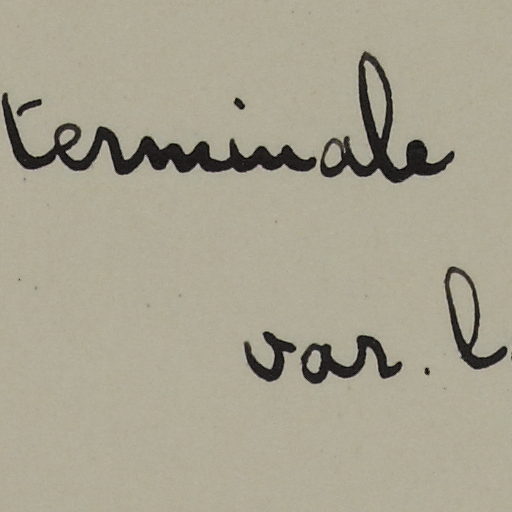 terminale
var. l